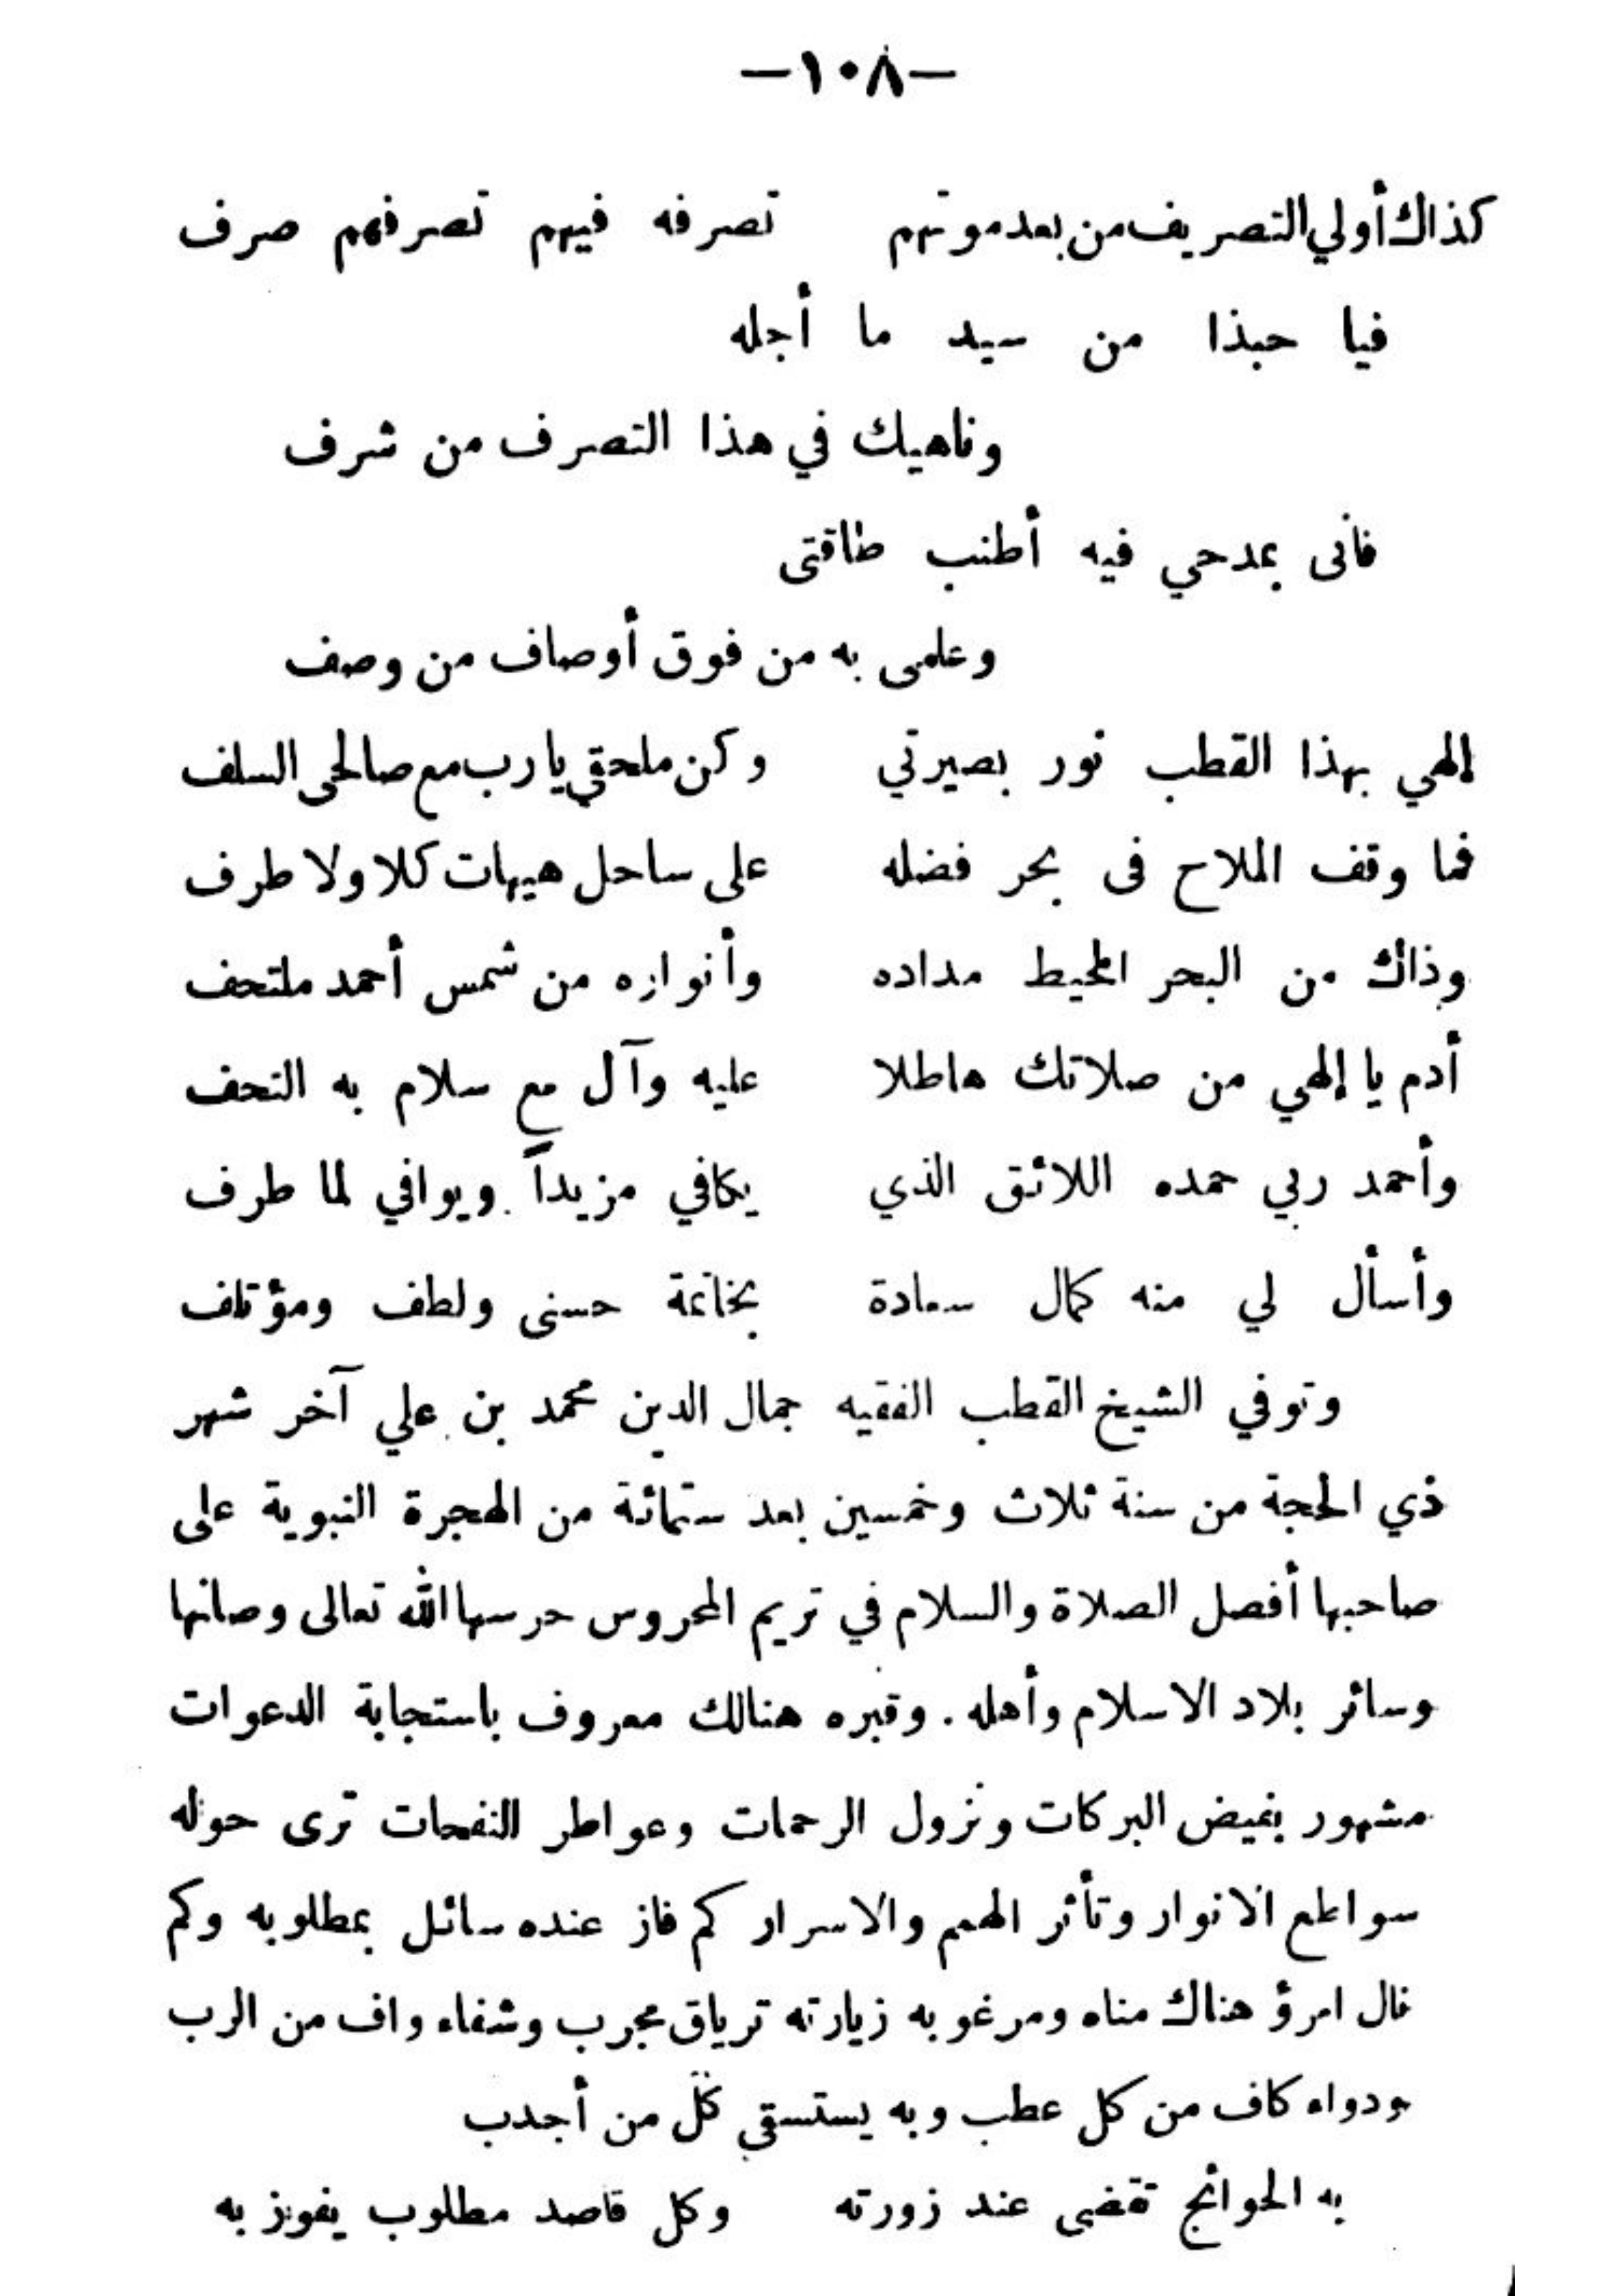 —١٠٨—
كذاك أولي التصريف من بعد موتهم تصرفه فيهم تصرفهم صرف
فيا حبذا من سيد ما أجله
وناهيك في هذا التصرف من شرف
فانى بمدحي فيه أطنب طاقتى
وعلمى به من فوق أوصاف من وصف
إلهي بهذا القطب نور بصيرتي وكن ملحقي يا رب مع صالحى السلف
فما وقف الملاح فى بحر فضله على ساحل هيهات كلا ولا طرف
وذاك من البحر المحيط مداده وأنواره من شمس أحمد ملتحف
أدم يا إلهي من صلاتك هاطلا عليه وآل مع سلام به التحف
وأحمد ربي حمده اللائق الذي يكافي مزيداً ويوافي لما طرف
وأسأل لي منه كمال سعادة بخاتمة حسنى ولطف ومؤتلف
وتوفي الشيخ القطب الفقيه جمال الدين محمد بن علي آخر شهر
ذي الحجة من سنة ثلاث وخمسين بعد ستمائة من الهجرة النبوية على
صاحبها أفصل الصلاة والسلام في تريم المحروس حرسها الله تعالى وصانها
وسائر بلاد الاسلام وأهله . وقبره هنالك معروف باستجابة الدعوات
مشهور بفيض البركات ونزول الرحمات وعواطر النفحات ترى حوله
سواطع الانوار وتأثر الهمم والاسرار كم فاز عنده سائل بمطلوبه وكم
نال امرؤ هناك مناه ومرغوبه زيارته ترياق مجرب وشفاء واف من الرب
ودواء كاف من كل عطب وبه يستسقي كل من أجدب
به الحوائج تقضى عند زورته وكل قاصد مطلوب يفوز به